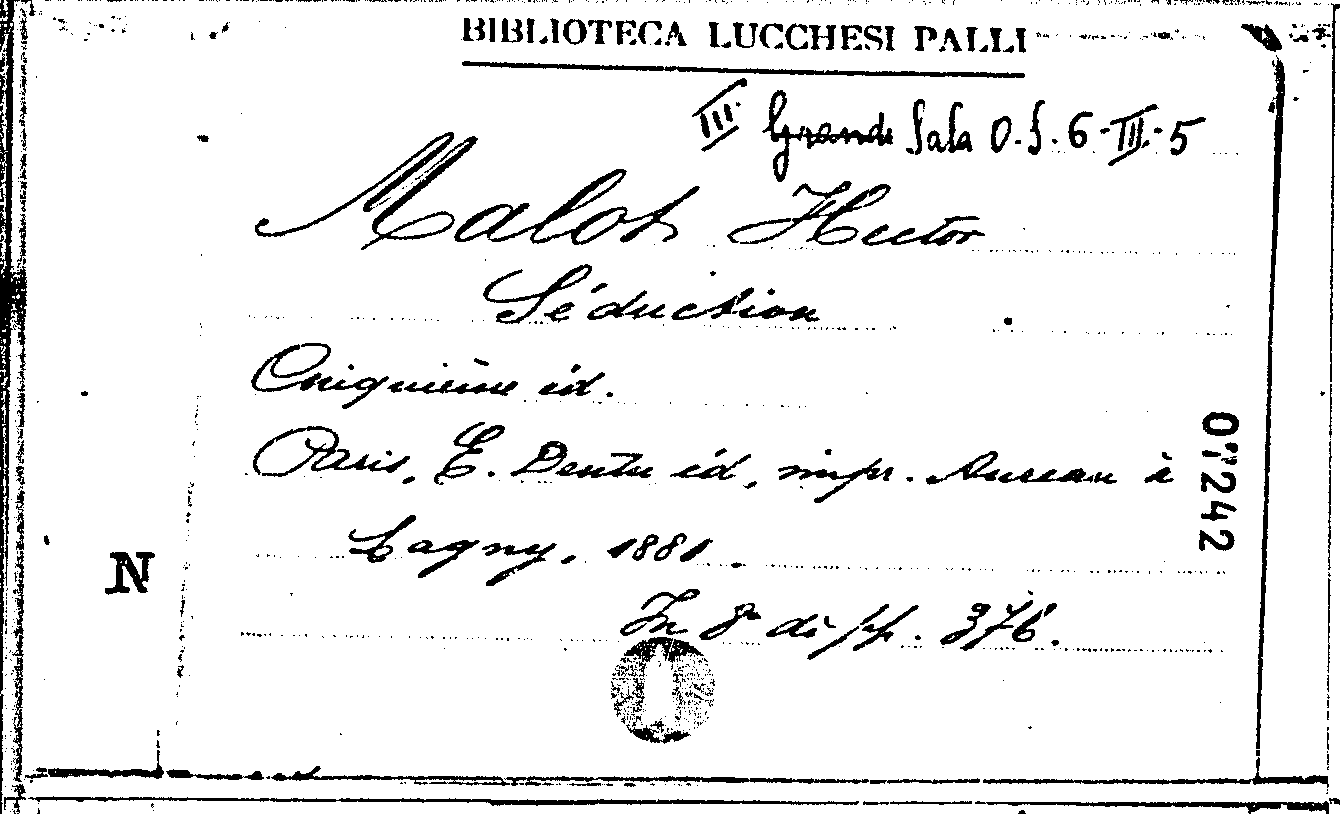 BIBLIOTECA LUCCHESI PALLI
III Grande Sala O.S. 6-III-5
Malot Hector
Séduction
Cinquième éd.
Paris, E. Dentu éd, impr. Aureau à
Lagny, 1881.
In 8° di pp. 376.
N